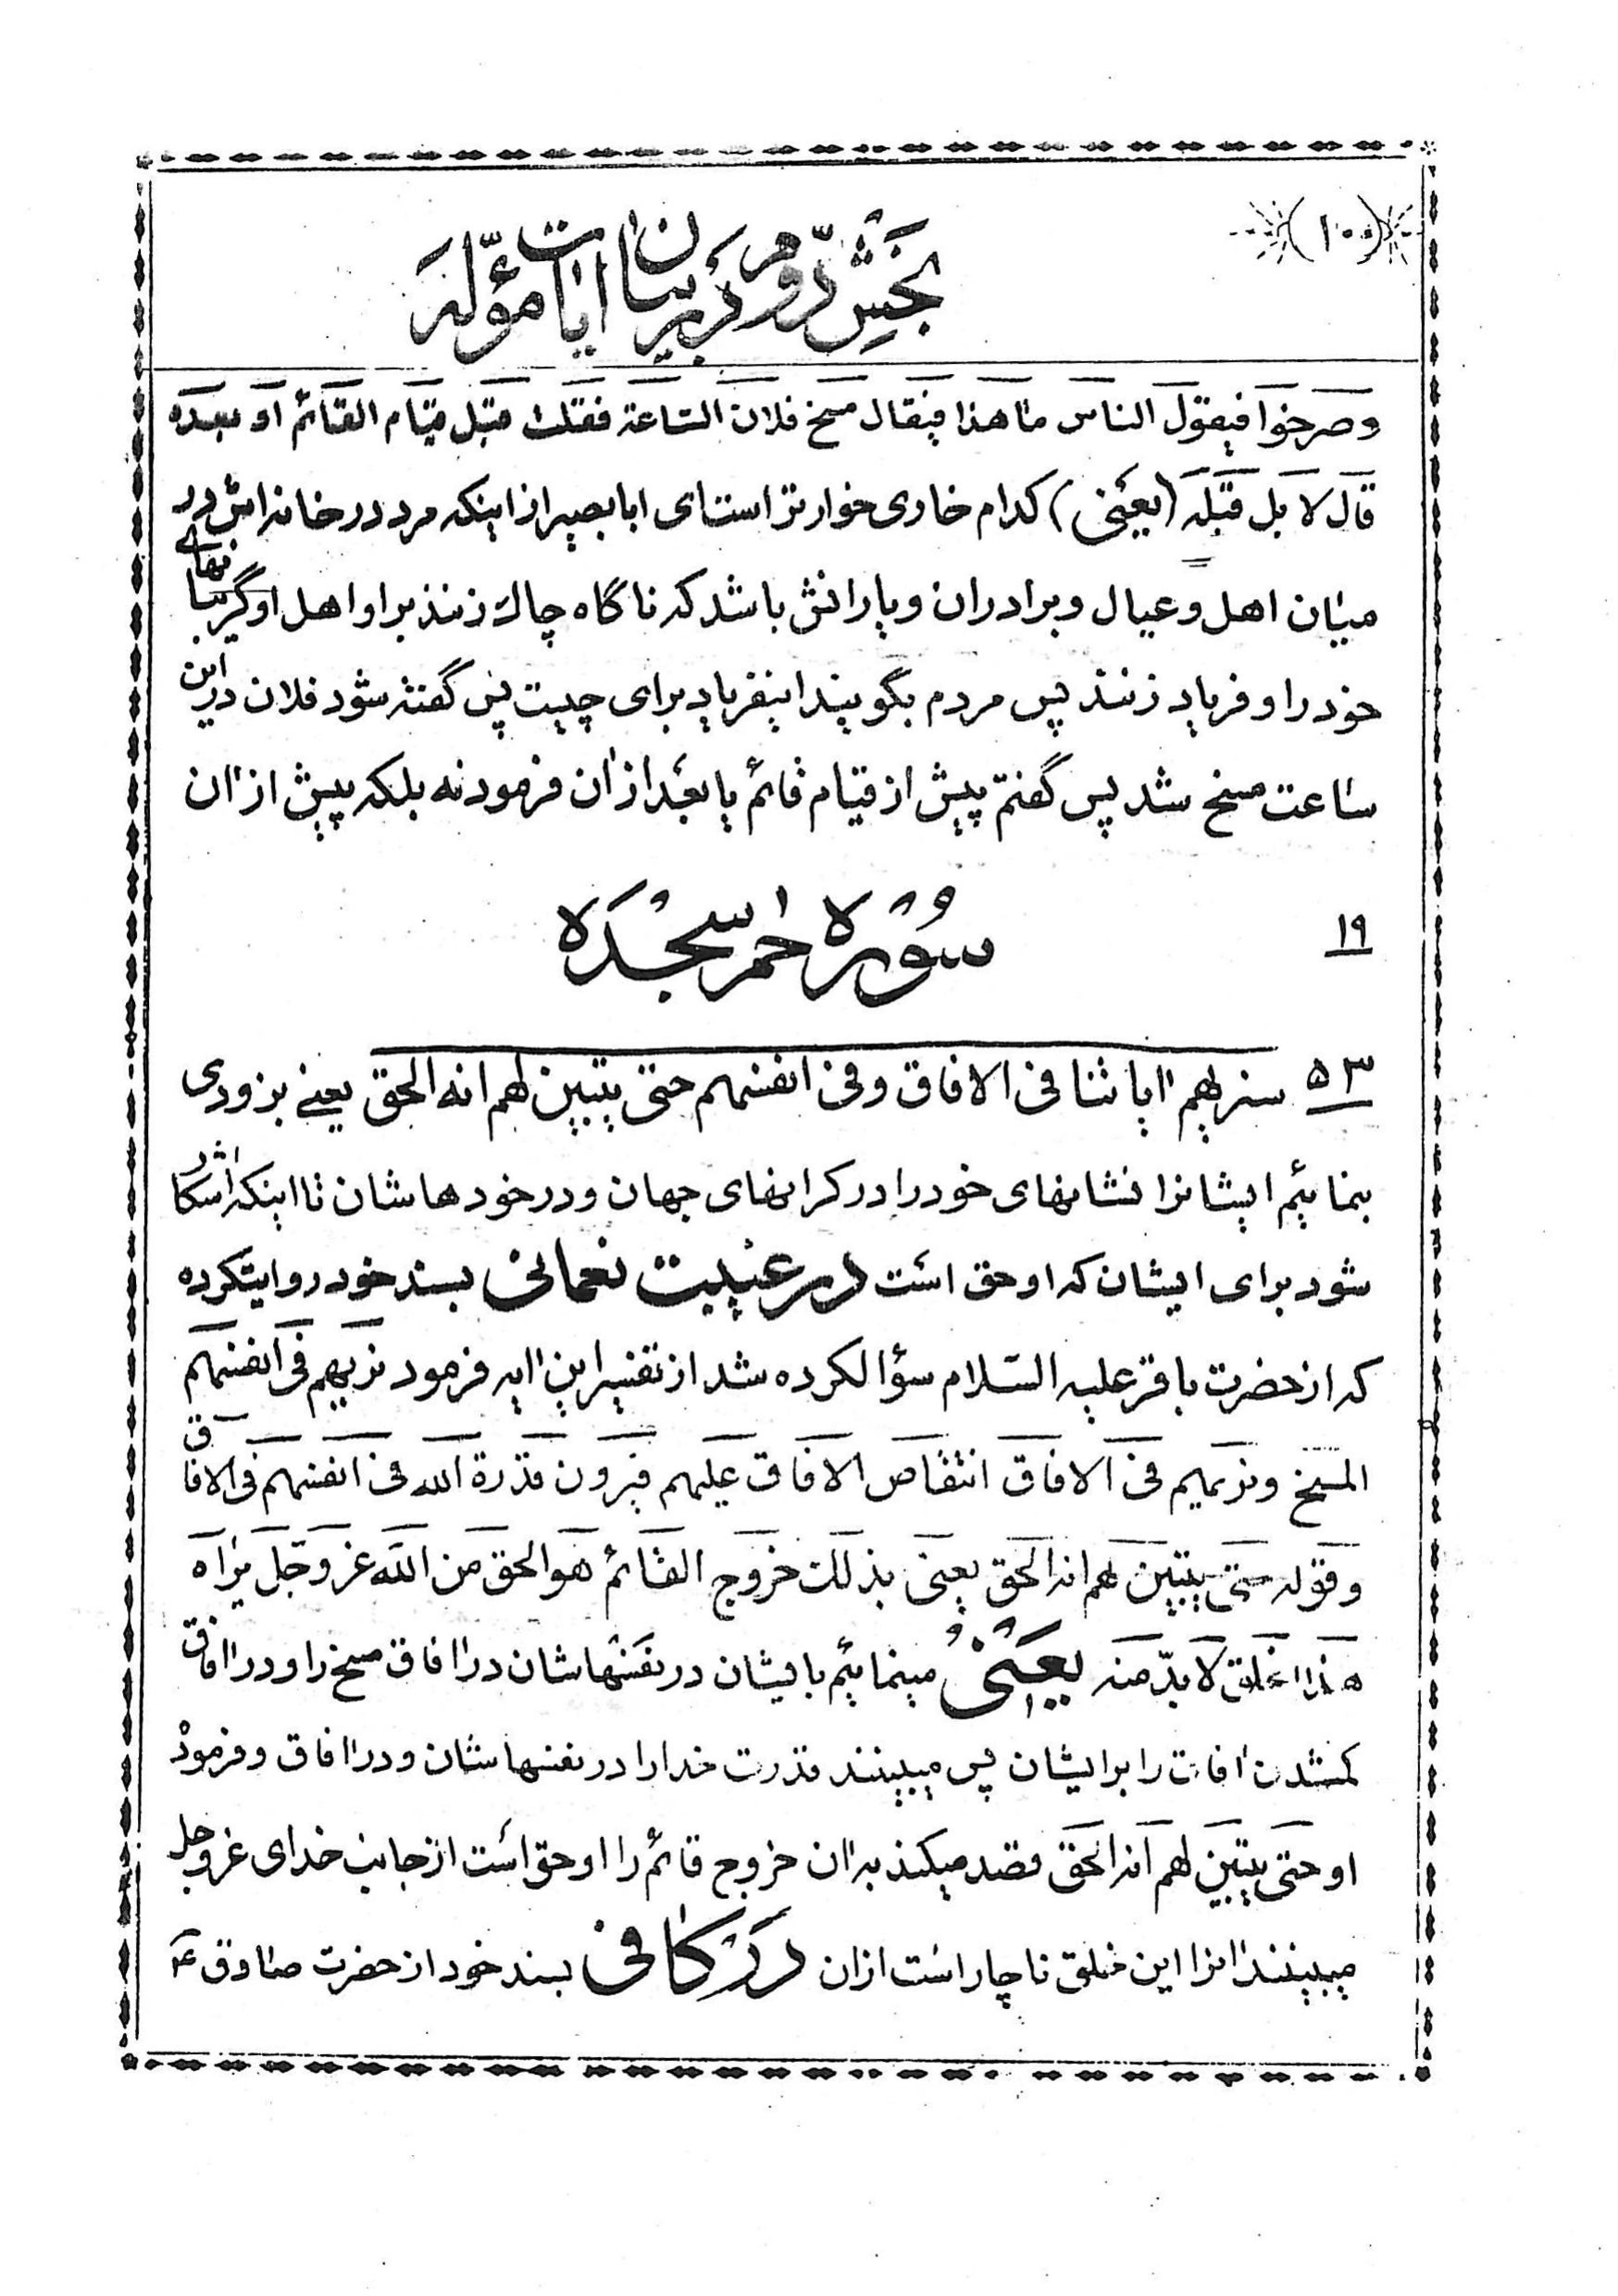 (۱۰۰)
بخش دوّم در بیان ایات مؤوّله
و صرخوا فیقول الناس ما هذا فیقال مسخ فلان الساعة فقلت قبل قیام القائم او بعده
قال لا بل قبله (یعنی) کدام خاری خوارتر است ای ابا بصیر از اینکه مرد در خانه اش در
میان اهل و عیال و برادران و یارانش باشد که ناگاه چاک زنند بر او اهل او گریبانهای
خود را و فریاد زنند پس مردم بگویند اینفریاد برای چیست پس گفته شود فلان در این
ساعت مسخ شد پس گفتم پیش از قیام قائم یا بعد از ان فرمود نه بلکه پیش از ان
۱۹
سوره حم سجده
۵۳ سنریهم ایاتنا فی الافاق و فی انفسهم حتی یتبین لهم انه الحق یعنی بزودی
بنمائیم ایشانرا نشانهای خود را در کرانهای جهان و در خودهاشان تا اینکه اشکار
شود برای ایشان که او حق است در غیبت نعمانی بسند خود روایتکرده
که از حضرت باقر علیه السلام سؤالکرده شد از تفسیر این ایه فرمود نریهم فی انفسهم
المسخ و نریهم فی الافاق انتقاص الافاق علیهم فیرون قدرة الله فی انفسهم فی الافاق
و قوله حتی یتبین لهم انه الحق یعنی بذلک خروج القائم هو الحق من الله عز و جل یراه
هذا الخلق لا بدّ منه یعنی مینمائیم بایشان در نفسهاشان در افاق مسخ را و در افاق
کمشدن افات را بر ایشان پس میبینند قدرت خدا را در نفسهاشان و در افاق و فرمود
او حتی یتبین لهم انه الحق قصد میکند به ان خروج قائم را او حق است از جانب خدای عز و جل
میبینند انرا این خلق ناچار است از ان در کافی بسند خود از حضرت صادق ع